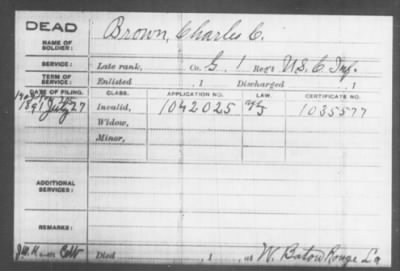 DEAD
NAME OF SOLDIER:
Brown, Charles C.
SERVICE:
Late rank, Co. G. 1 Reg't U.S.C. Inf.
TERM OF SERVICE:
Enlisted , 1 Discharged , 1
DATE OF FILING. CLASS. APPLICATION NO. LAW. CERTIFICATE NO.
1891 July 27 Invalid, 1042025 1035577
Widow,
Minor,
ADDITIONAL SERVICES:
REMARKS:
Died , 1 , at W. Baton Rouge La